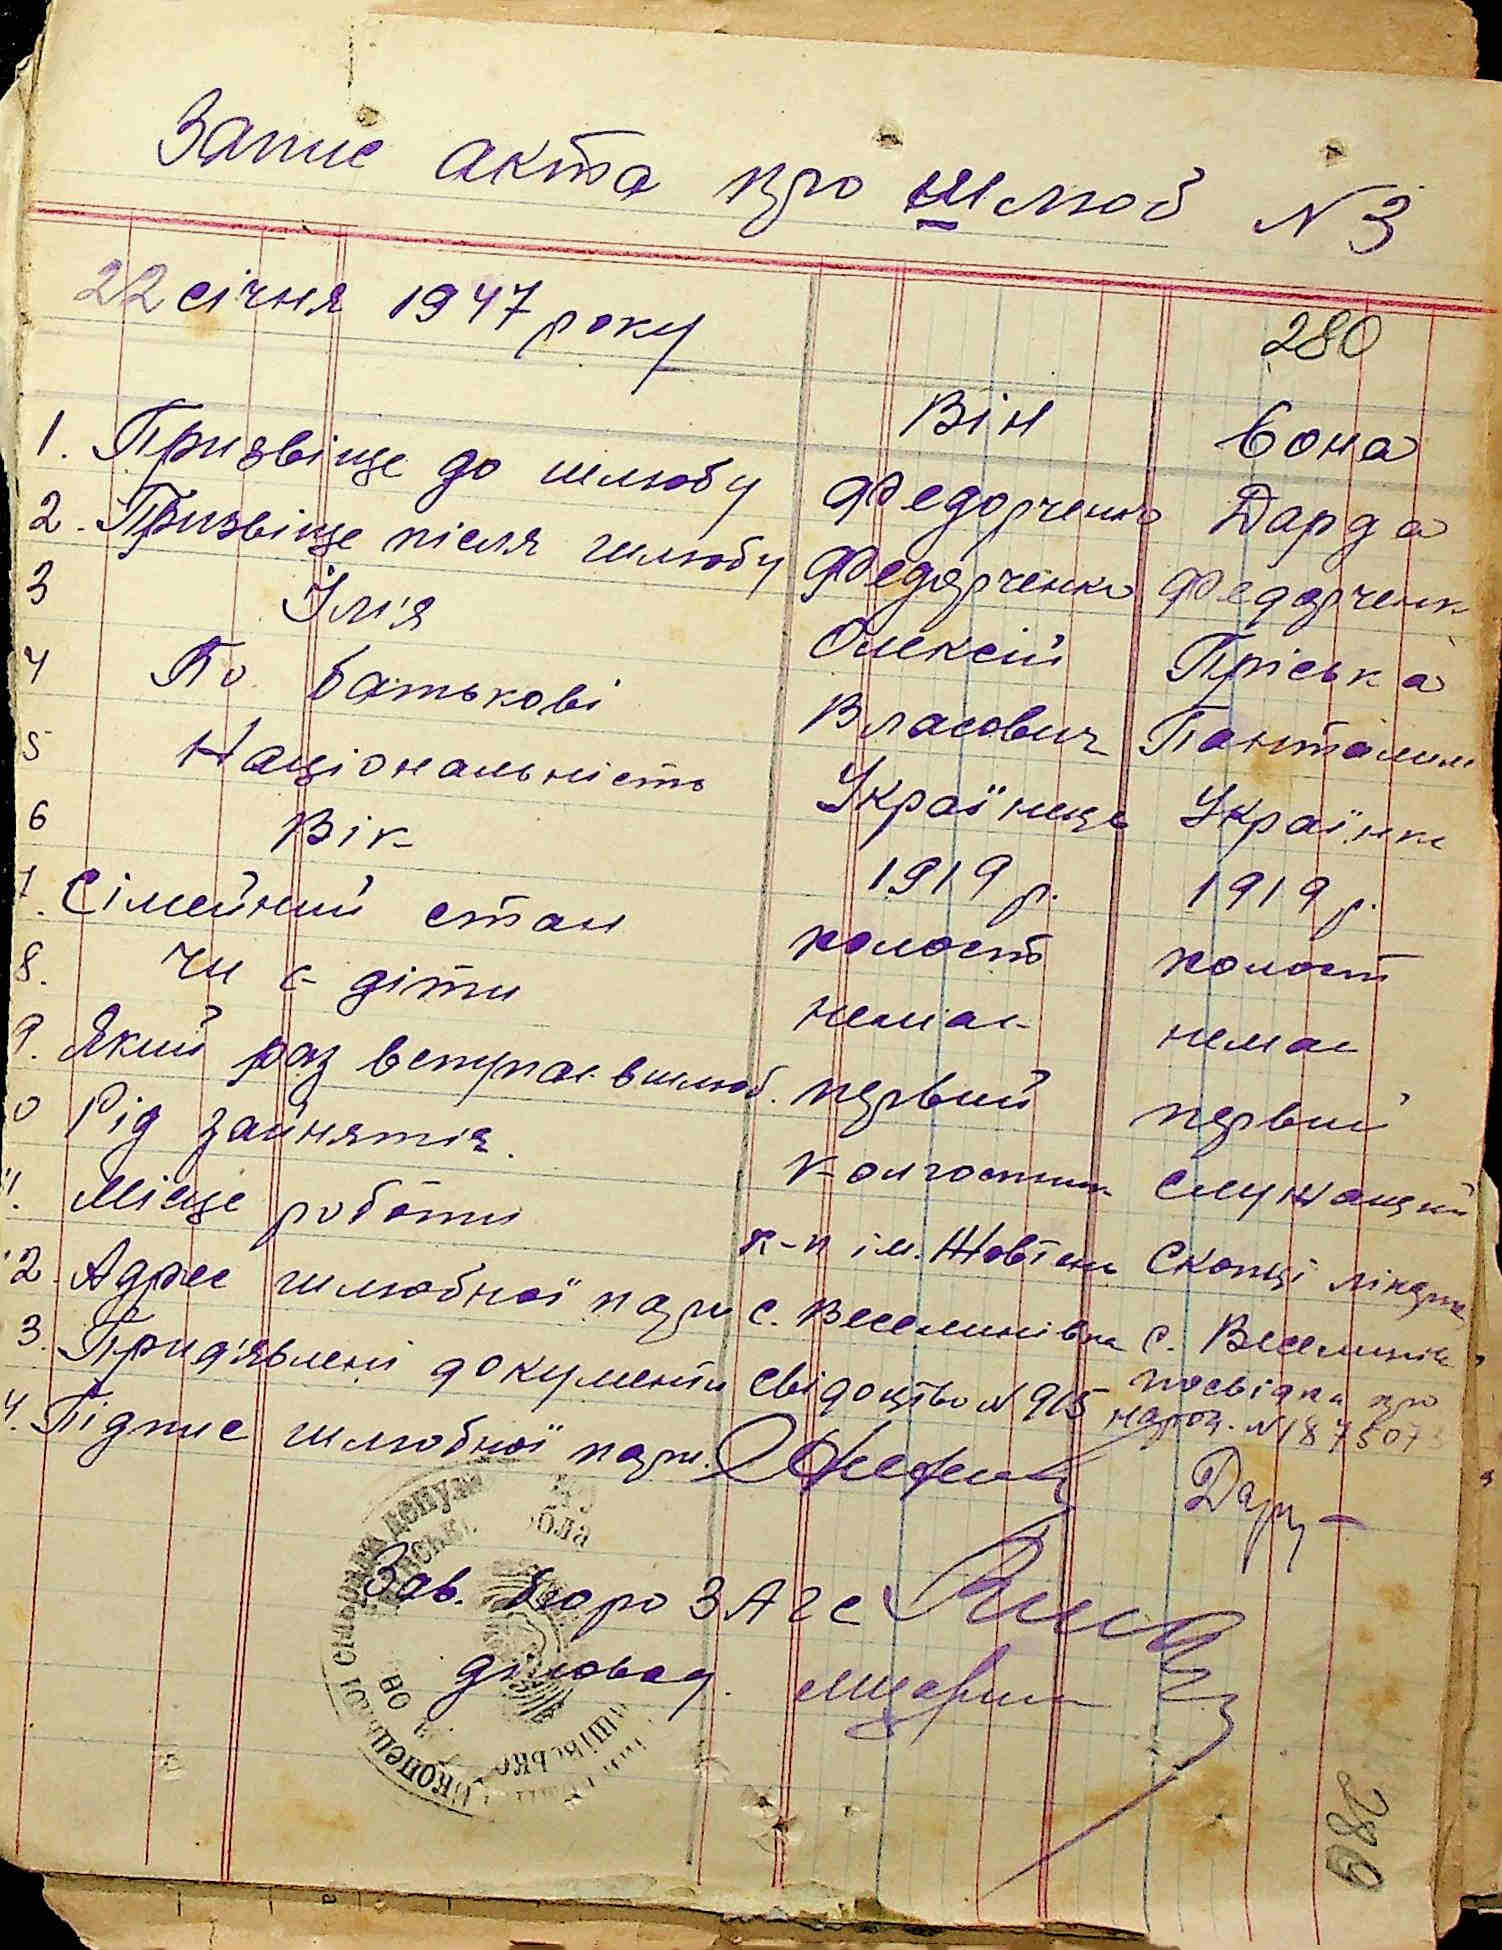 Запис акта про шлюб N 3
22 січня 1947 року
280
Він Вона
1. Призвіще до шлюбу Федорченко Дарда
2. Призвіще після шлюбу Федорченко Федорченк
3 Ім'я Олексій Пріська
4 По батькові Власович Панталим
5 Національність Українець Українка
6 Вік 1919 р. 1919 р.
7. Сімейний стан холост холост
8. Чи є діти немає немає
9. Який раз вступає в шлюб. первий первий
0 Рід зайнятія. Колгоспник Служащий
11. Місце роботи к-п ім. Жовтня Скопці лікарня
12. Адрес шлюбної пари с. Веселинівка с. Веселинів
3. Прид'явлені документи Свідоцтво N 915 посвідка про
народ. N 187507
4. Підпис шлюбної пари.
Зав. бюро ЗАГС
діловод.
289